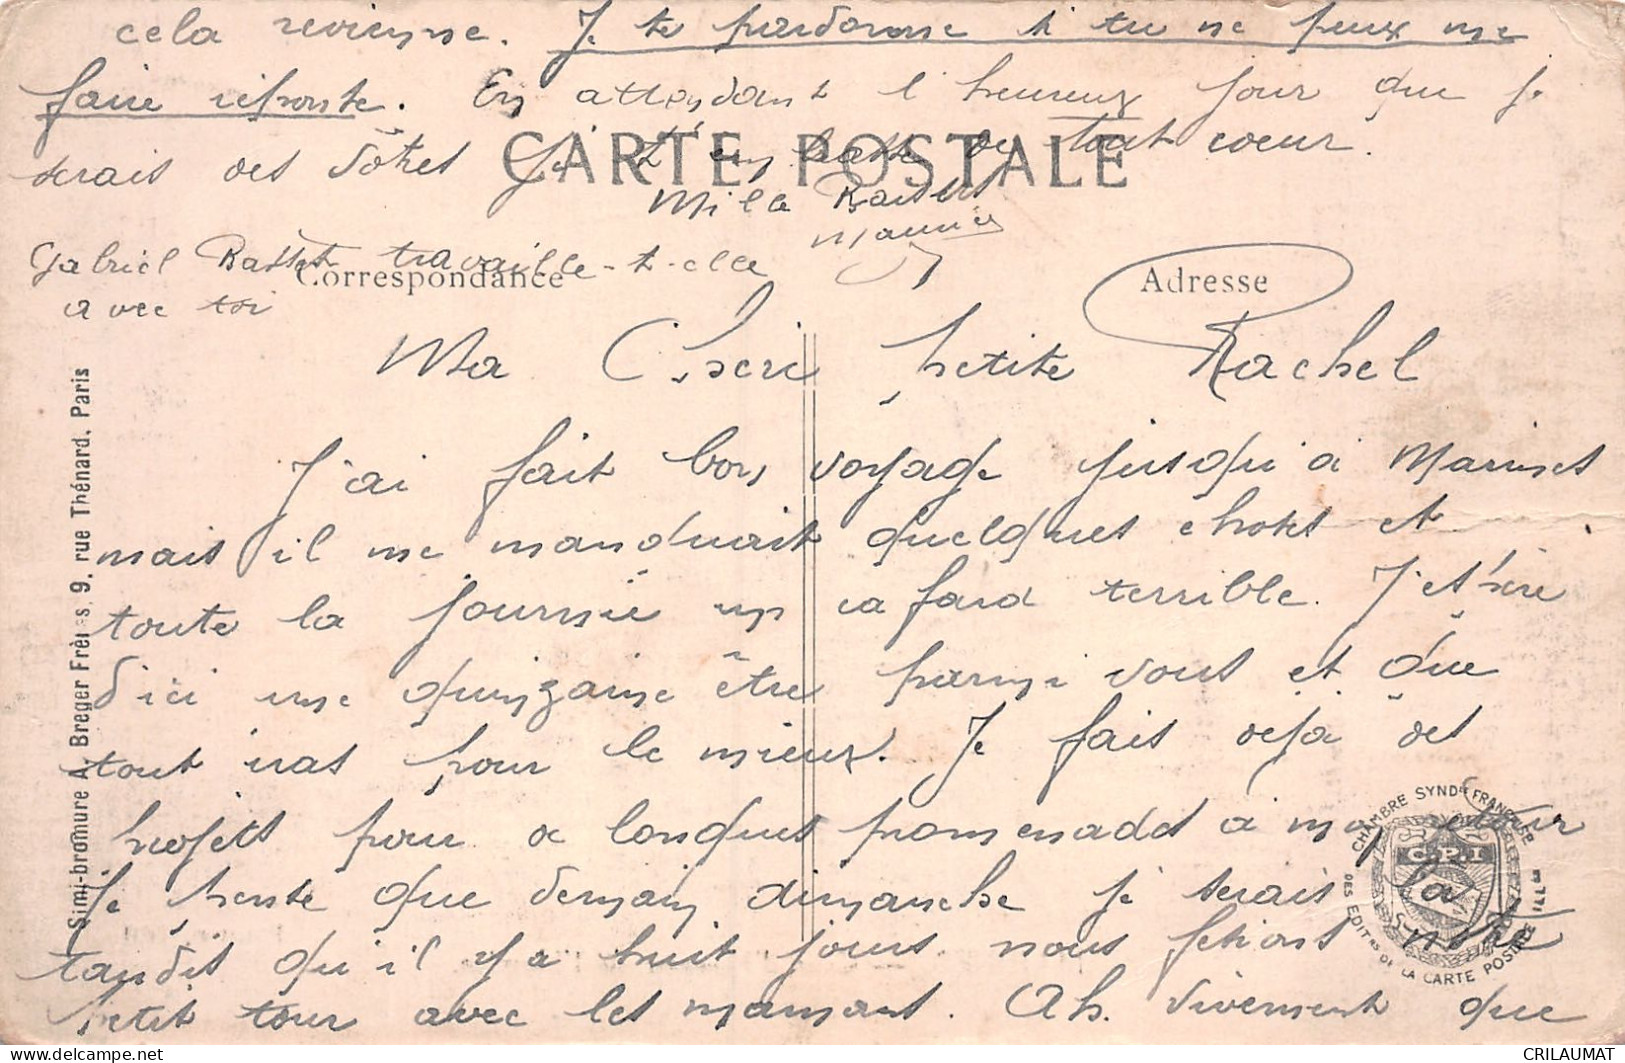 cela revienne. Je te pardonne si tu ne peux me
faire réponse. En attendant l'heureux jour que je
serais des vôtres je t'embrasse de tout coeur.
CARTE POSTALE
Mille Baisers
Gabriel Basset travaille-t-elle
avec toi
Correspondance
Adresse
Ma Cheri petite Rachel
J'ai fait bon voyage jusqu'à
mais il me manquait quelques choses et
toute la journée un cafard terrible. J'espère
d'ici une quinzaine être parmi vous et que
tout iras pour le mieux. Je fais deja des
projets pour de longues promenades à mon retour
Je pense que demain dimanche je serais là
tandis qu'il y a huit jours nous fesions notre
petit tour avec les mamans. Ah. vivement que
Simi-bromure A. Breger Frères, 9, rue Thénard, Paris
CHAMBRE SYNDle FRANÇAISE
C.P.I
DES EDITrs DE LA CARTE POSTALE ILLée
CRILAUMAT